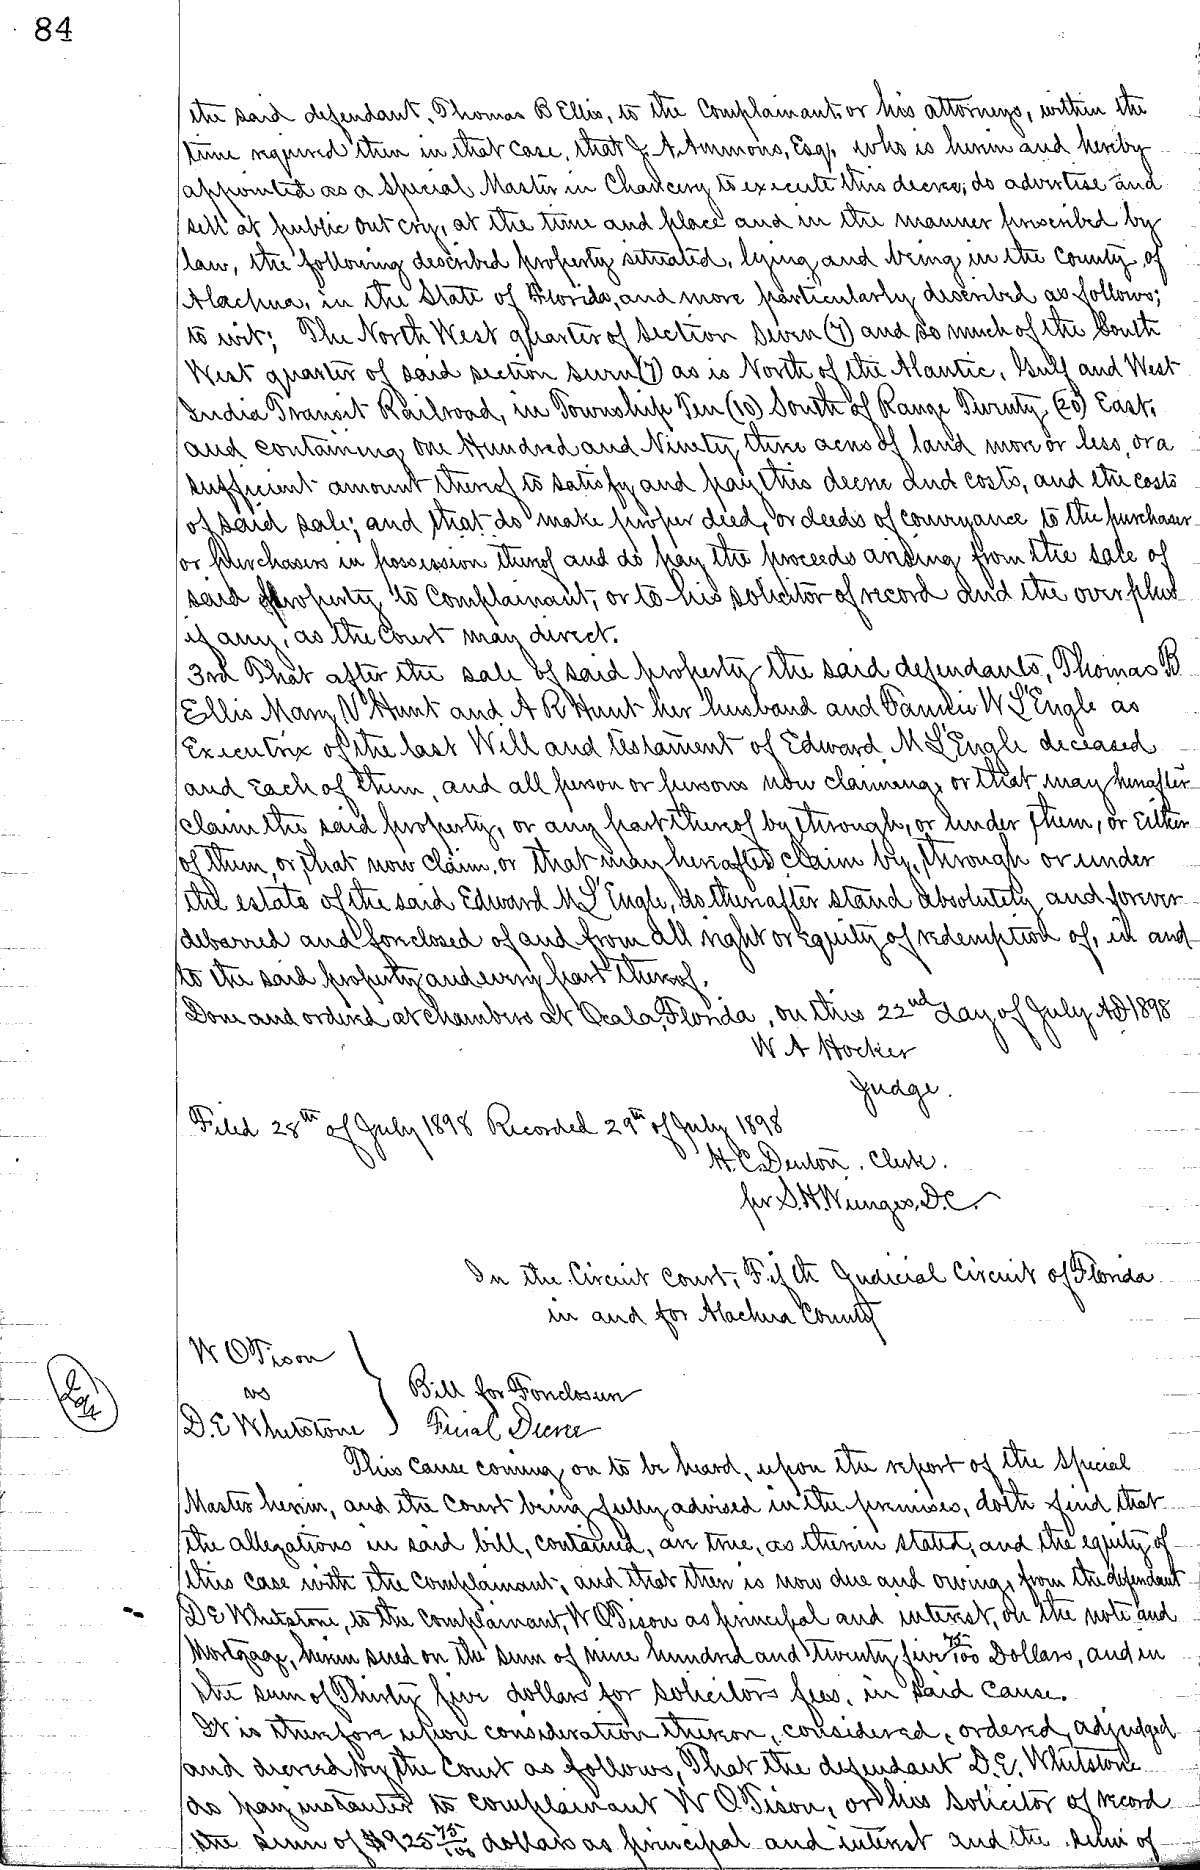 84
the said defendant, Thomas B Ellis, to the Complainant or his attorneys, within the
time required then in that case, that J. A. Ammons, Esq. who is herein and hereby
appointed as a Special Master in Chancery to execute this decree; do advertise and
sell at public out cry, at the time and place and in the manner prescribed by
law, the following described property situated, lying and being in the County of
Alachua, in the State of Florida, and more particularly described as follows;
to wit; The North West quarter of Section Seven (7) and so much of the South
West quarter of said section seven (7) as is North of the Atlantic, Gulf and West
India Transit Railroad, in Township Ten (10) South of Range Twenty (20) East.
and containing one Hundred and Ninety three acres of land more or less, or a
sufficient amount thereof to satisfy and pay this decree and costs, and the costs
of said sale; and that do make proper deed, or deeds of conveyance to the purchaser
or purchasers in possession thereof and do pay the proceeds arising from the sale of
said property to Complainant, or to his solicitor of record and the overplus
if any, as the Court may direct.
3rd That after the sale of said property the said defendants, Thomas B
Ellis Mary V Hunt and A R Hunt her husband and Fannie W L'Engle as
Executrix of the last Will and testament of Edward M L'Engle deceased
and Each of them, and all person or persons now claiming, or that may hereafter
claim the said property, or any part thereof by through, or under them, or Either
of them, or that now claim, or that may hereafter claim by, through or under
the estate of the said Edward M L'Engle, do thereafter stand absolutely and forever
debarred and foreclosed of and from all right or equity of redemption of, in and
to the said property and every part thereof.
Done and ordered at chambers at Ocala, Florida, on this 22nd day of July AD 1898
W A Hocker
Judge.
Filed 28th of July 1898 Recorded 29th of July 1898
H. C. Denton, Clerk.
per S. H. Wienges, D.C.
In the Circuit Court, Fifth Judicial Circuit of Florida
in and for Alachua County
W O Tison
vs
D. E Whetstone
Bill for Foreclosure
Final Decree
This cause coming on to be heard, upon the report of the Special
Master herein, and the Court being fully advised in the premises, doth find that
the allegations in said bill, contained, are true, as therein stated, and the equity of
this case with the complainant, and that there is now due and owing, from the defendant
D E Whetstone, to the complainant, W O Tison as principal and interest, on the note and
Mortgage, herein sued on the sum of nine hundred and twenty five 75/100 Dollars, and in
the sum of Thirty five dollars for solicitors fees, in said cause.
It is therefore upon consideration thereon, considered, ordered, adjudged
and decreed by the Court as follows, That the defendant D. E. Whetstone
do pay instanter to complainant W O Tison, or his solicitor of record
the sum of $925 75/100 dollars as principal and interest and the sum of